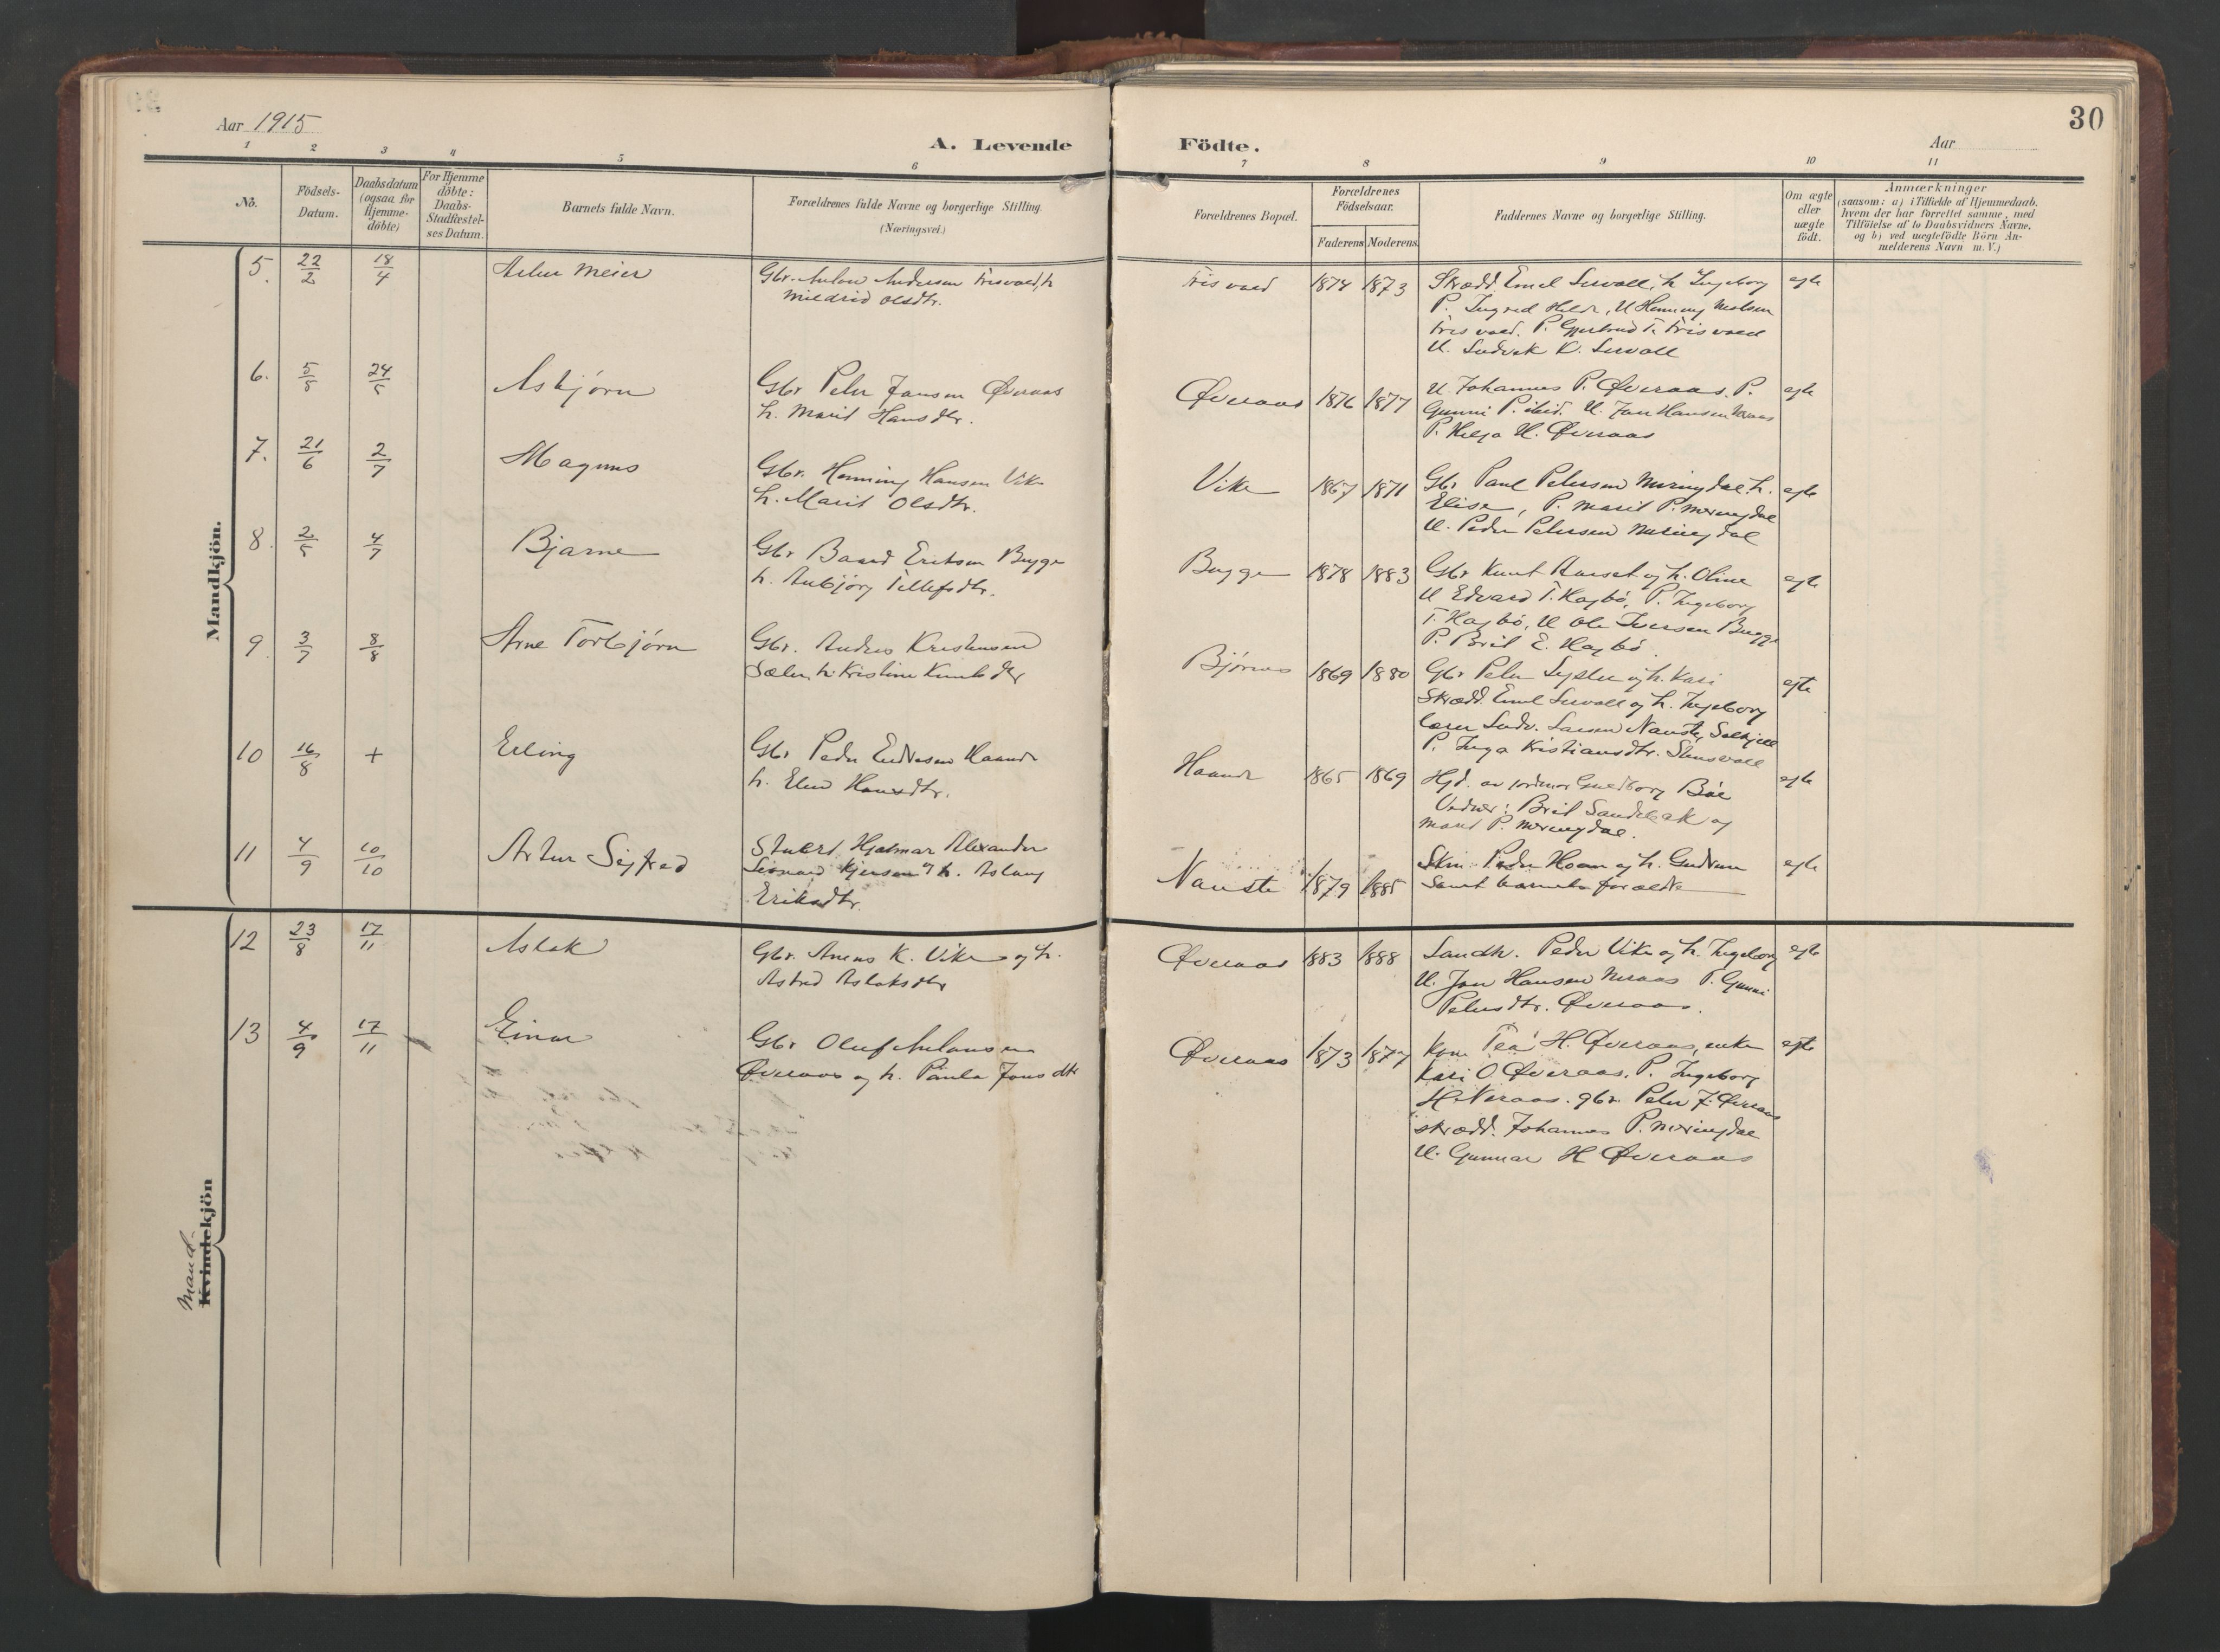 30
Aar 1915
A. Levende Födte.
Aar
1 2 3 4 5 6 7 8 9 10 11
No.
Födsels-
Datum.
Daabsdatum
(ogsaa for
Hjemme-
döbte)
For Hjemme
döbte:
Daabs-
Stadfæstel-
ses Datum.
Barnets fulde Navn.
Forældrenes fulde Navne og borgerlige Stilling.
(Næringsvei.)
Forældrenes Bopæl.
Forældrenes
Födselsaar.
Faderens Moderens
Faddernes Navne og borgerlige Stilling.
Om ægte
eller
uægte
födt.
Anmærkninger
(saasom: a) i Tilfælde af Hjemmedaab,
hvem der har forrettet samme, med
Tilföielse af to Daabsvidners Navne,
og b) ved uægtefödte Börn An-
melderens Navn m. V.)
Mandkjön.
5. 22/2 18/4 Meier
Gbr. Anton Andersen
Mildrid Olsdtr.
1874 1873
Skrædd. Emil h. Ingeborg
P. Ingrid U. Henning
P. Gjertrud T.
U. Ludvik K.
egte
6. 5/5 24/5 Asbjørn
Gbr. Peter Jansen Øveraas
h. Marit Hansdtr.
Øveraas 1876 1877
U. Johannes P. Øveraas. P.
Gunni P. ibid. U. Jan Hansen
P. H. Øveraas
egte
7. 21/6 2/7 Magnus
Gbr. Henning Hansen Vike
h. Marit Olsdtr.
Vike 1867 1871
Gbr. Paul Petersen Meringdal h.
Elise, P. Marit P. Meringdal
U. Peder Petersen Meringdal
egte
8. 2/5 4/7 Bjarne
Gbr. Baard Eriksen Bugge
h. Anbjørg
Bugge 1878 1883
Gbr. Knut og h. Oline
U Edvard T. Hagbø, P. Ingeborg
T. Hagbø, U Ole Iversen Bugge
P. Brit E. Hagbø.
egte
9. 3/7 8/8 Arne Torbjørn
Gbr. Andres Kristensen
h. Kristine Knutsdtr
1869 1880
Gbr. Peter og h. Kari
Skrædd. Emil og h. Ingeborg
Ludv. Larsen Nauste,
P. Inga Kristiansdtr.
egte
10 16/8 + Erling
Gbr. Peder
h. Elen Hansdtr.
1865 1869
Hjd. av jordmor Guldborg Bøe
Vidner: Brit Sandbak og
Marit P. Meringdal.
egte
11 4/9 10/10 Artur Sigfred
Hjalmar Alexander
og h. Aslaug
Eriksdtr.
Nauste 1879 1885
Peder og h. Gudrun
samt barnets forældre
egte
Mand
Kvindekjön
12 23/8 17/11 Aslak
Gbr. K. Vike og h.
Astrid Aslaksdtr
Øveraas 1883 1888
Landh. Peder Vike og h. Ingeborg
U. Jan Hansen Neraas P. Gunni
Petersdtr. Øveraas.
egte
13 4/9 17/11 Einar
Gbr Oluf Antonsen
Øveraas og h. Paula Jonsdtr
Øveraas 1873 1877
Kone Tea H. Øveraas, enke
Kari O Øveraas, P. Ingeborg
H. Neraas. gbr. Peter J. Øveraas
skrædd. Johannes P. Meringdal
U. Gunnar H Øveraas
egte